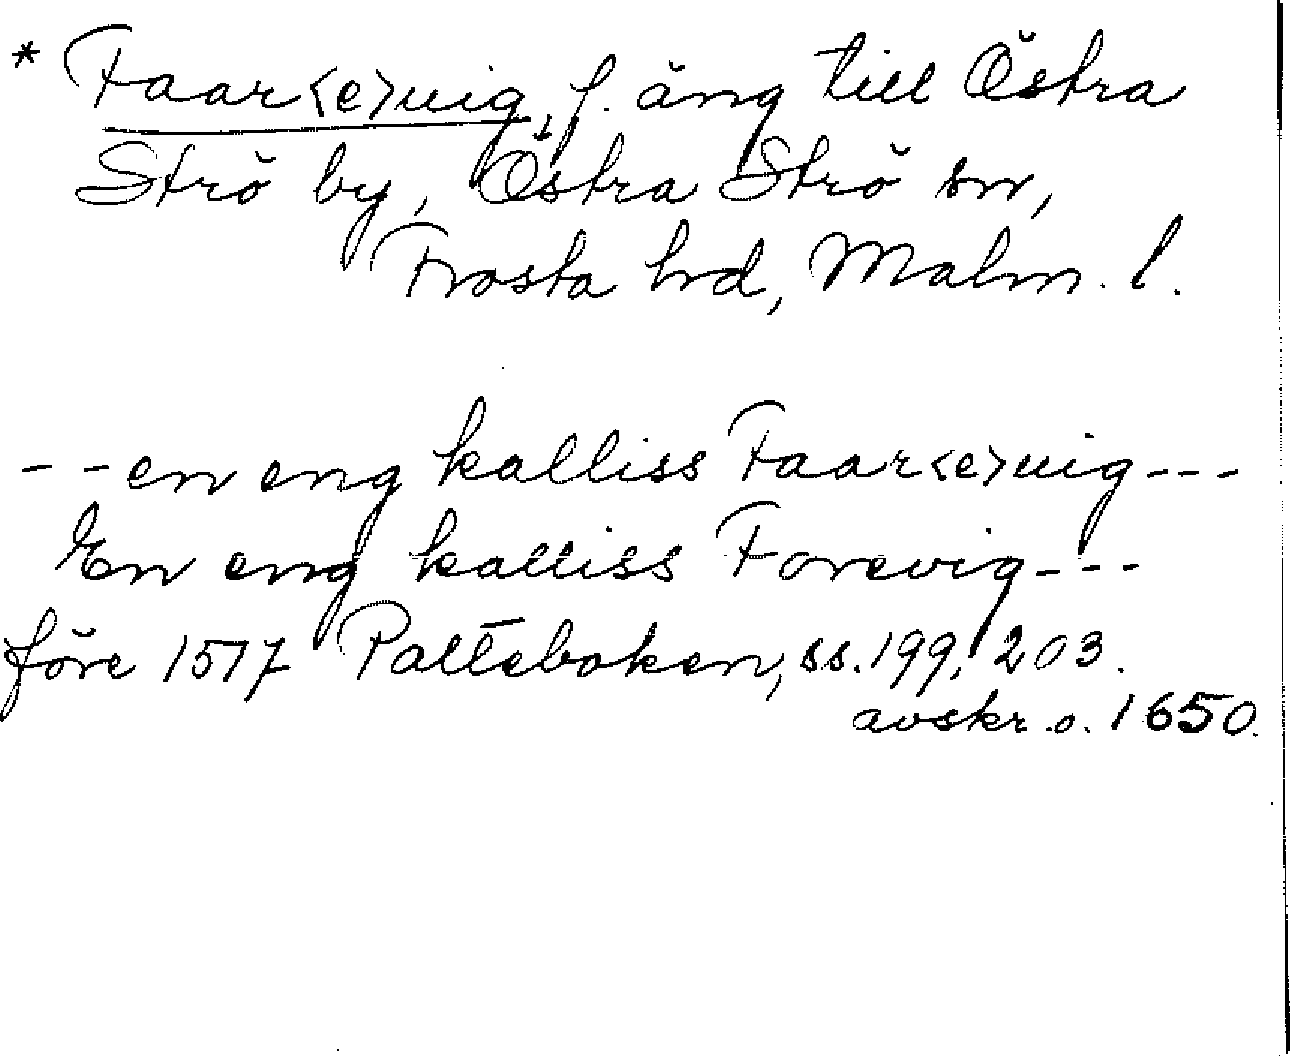 * Faar<e>uig, f. äng till Östra
Strö by, Östra Strö sn,
Frosta hd, Malm. l.
- - en eng kalliss Faar<e>uig - - -
En eng kalliss Forevig - - -
före 1517 Palteboken, ss. 199, 203.
avskr. o. 1650.